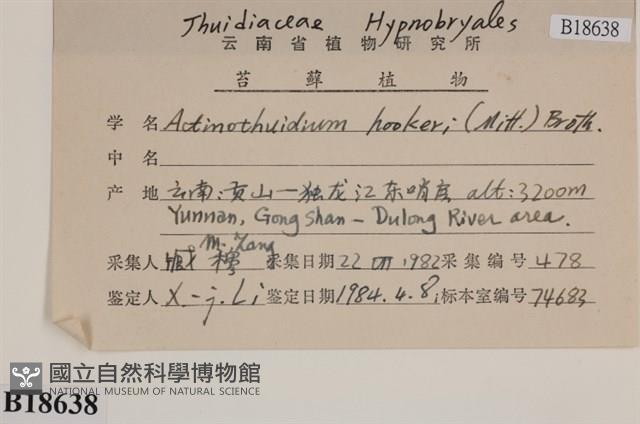 Thuidiaceae Hypnobryales
B18638
云南省植物研究所
苔藓植物
学名 Actinothuidium hookeri (Mitt.) Broth.
中名
产地 云南:贡山—独龙江东哨房 alt: 3200m
Yunnan, Gongshan - Dulong River area.
M. Zang
采集人 臧穆 采集日期 22 VII 1982 采集编号 478
鉴定人 X.-j. Li 鉴定日期 1984.4.8 标本室编号 74683
國立自然科學博物館
NATIONAL MUSEUM OF NATURAL SCIENCE
B18638